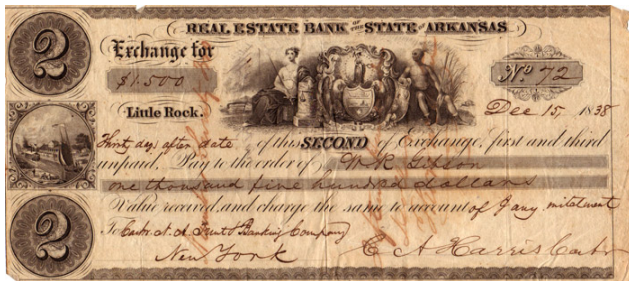 REAL ESTATE BANK OF THE STATE OF ARKANSAS
2
Exchange for
$1.500
No 72
Little Rock. Dec 15, 1838
days after date of this SECOND of Exchange, first and third
unpaid, Pay to the order of W. R. Gibson
one thousand five hundred dollars
Value received, and charge the same to account of
2
To Banking Company
New York
C A Harris Cashr